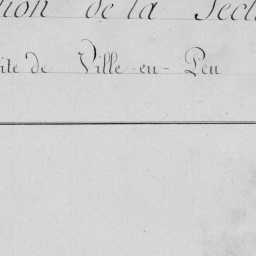 tion de la Secti
ite de Ville-en-Peu